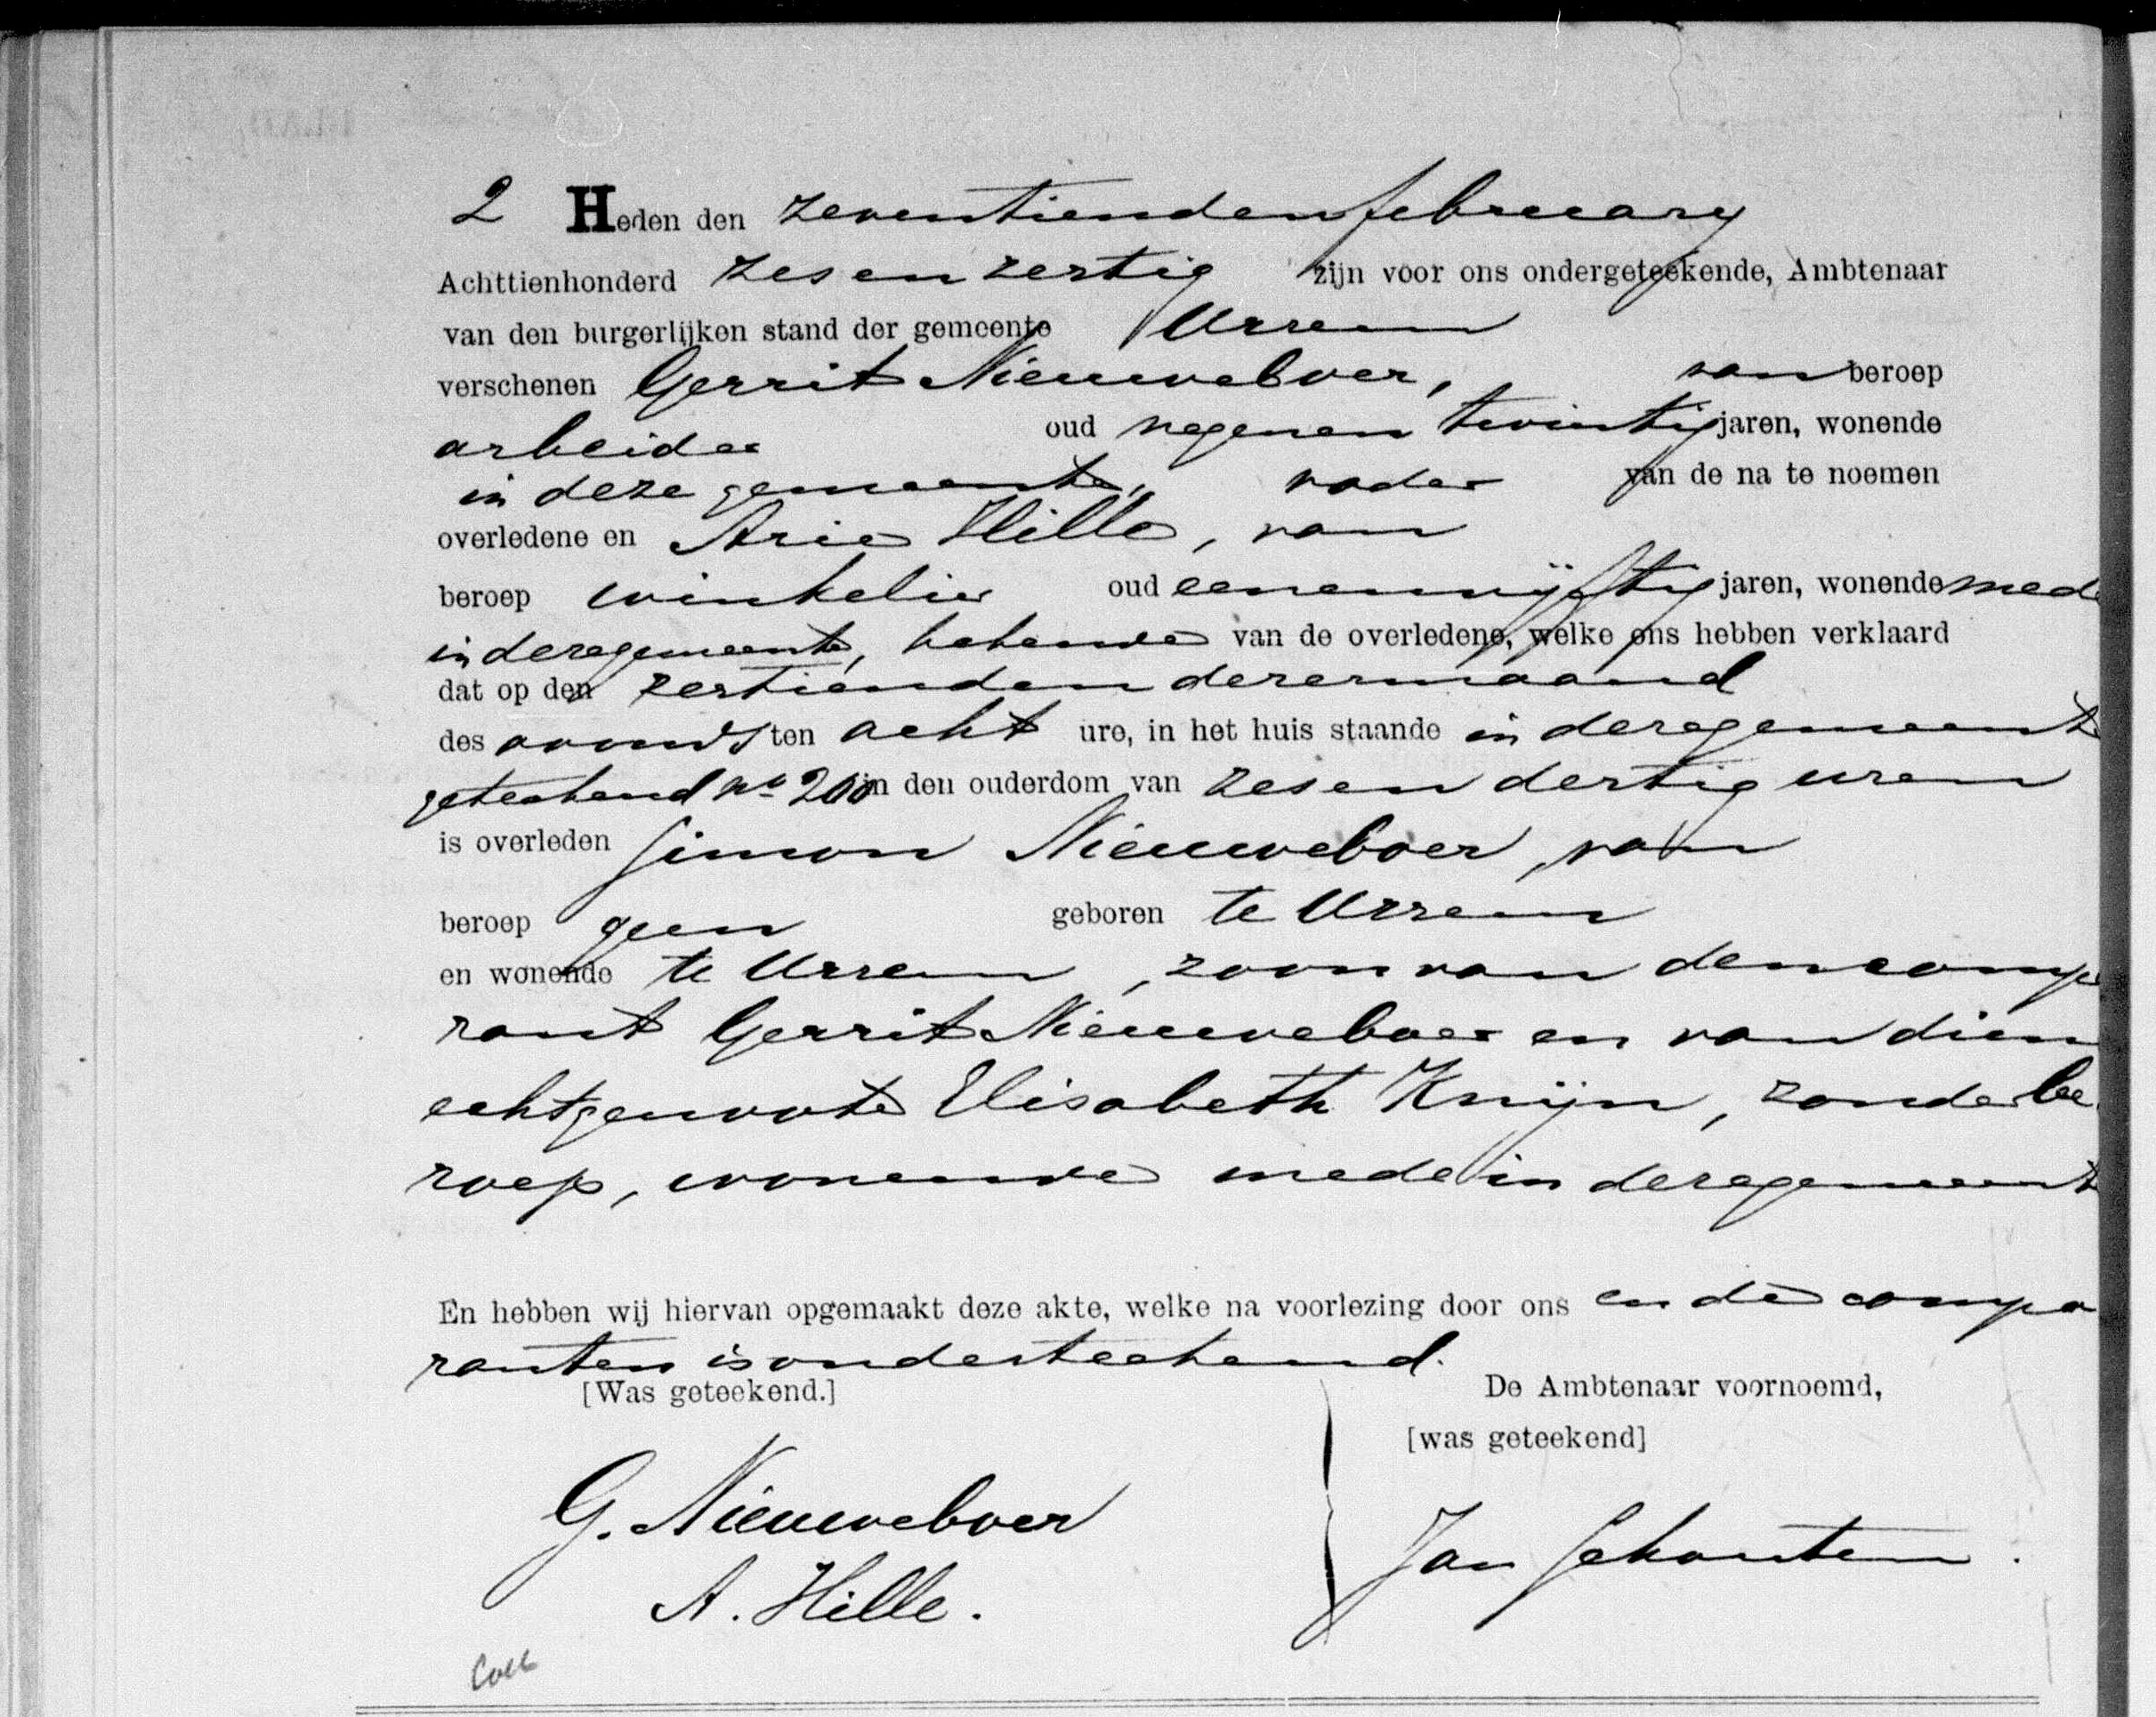 2 Heden den zeventienden february
Achttienhonderd zesenzestig zijn voor ons ondergeteekende, Ambtenaar
van den burgerlijken stand der gemeente Ursem
verschenen Gerrit Nieuweboer, van beroep
arbeider oud negenentwintig jaren, wonende
in deze gemeente, vader van de na te noemen
overledene en Arie Hille, van
beroep winkelier oud eenenvijftig jaren, wonende mede
in dezegemeente, bekende van de overledene, welke ons hebben verklaard
dat op den zestienden dezermaand
des avonds ten acht ure, in het huis staande in dezegemeente
geteekend No 200 in den ouderdom van zesendertig uren
is overleden Simon Nieuweboer, van
beroep geen geboren te Ursem
en wonende te Ursem, zoon van den compa
rant Gerrit Nieuweboer en van dien
echtgenoote Elisabeth Knijn, zonder be
roep, wonende mede in dezegemeente
En hebben wij hiervan opgemaakt deze akte, welke na voorlezing door ons en de compa
ranten is onderteekend.
[Was geteekend.] De Ambtenaar voornoemd,
[was geteekend]
G. Nieuweboer
Jan Schouten.
A. Hille.
Coll